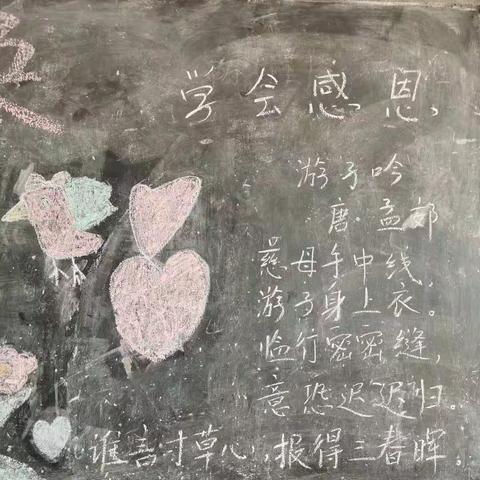 学会感恩,
游子吟
唐.孟郊
慈母手中线,
游子身上衣。
临行密密缝,
意恐迟迟归。
谁言寸草心,报得三春晖。